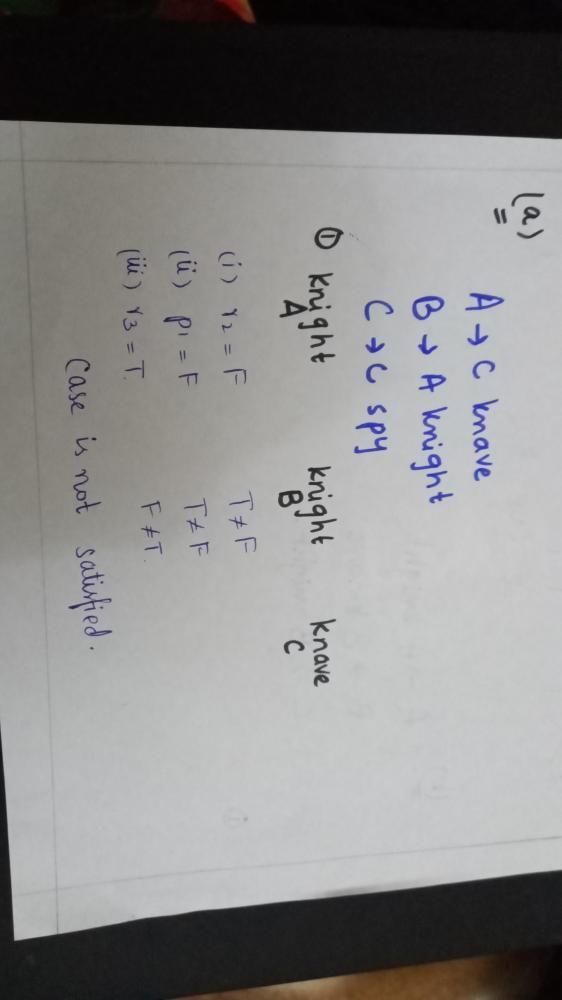 (a)
A → C knave
B → A knight
C → C spy
① knight knight knave
A B C
(i) r2 = F T ≠ F
(ii) p1 = F T ≠ F
(iii) r3 = T. F ≠ T.
Case is not satisfied.